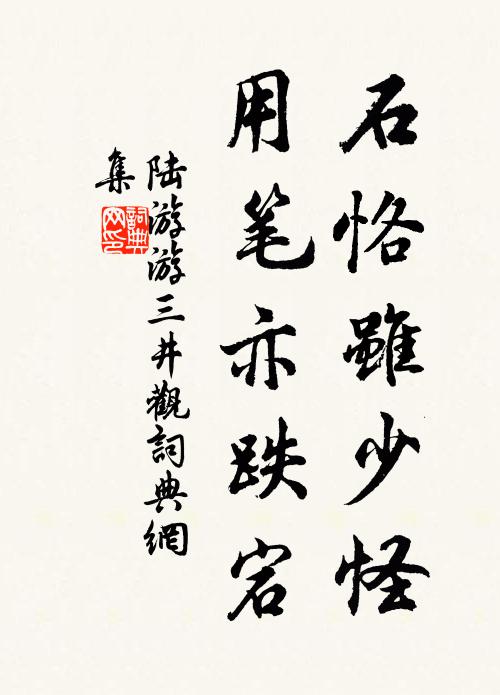 石恪雖少怪
用笔亦跌宕
陆游游三井觀詞典網
集
詞典
网印